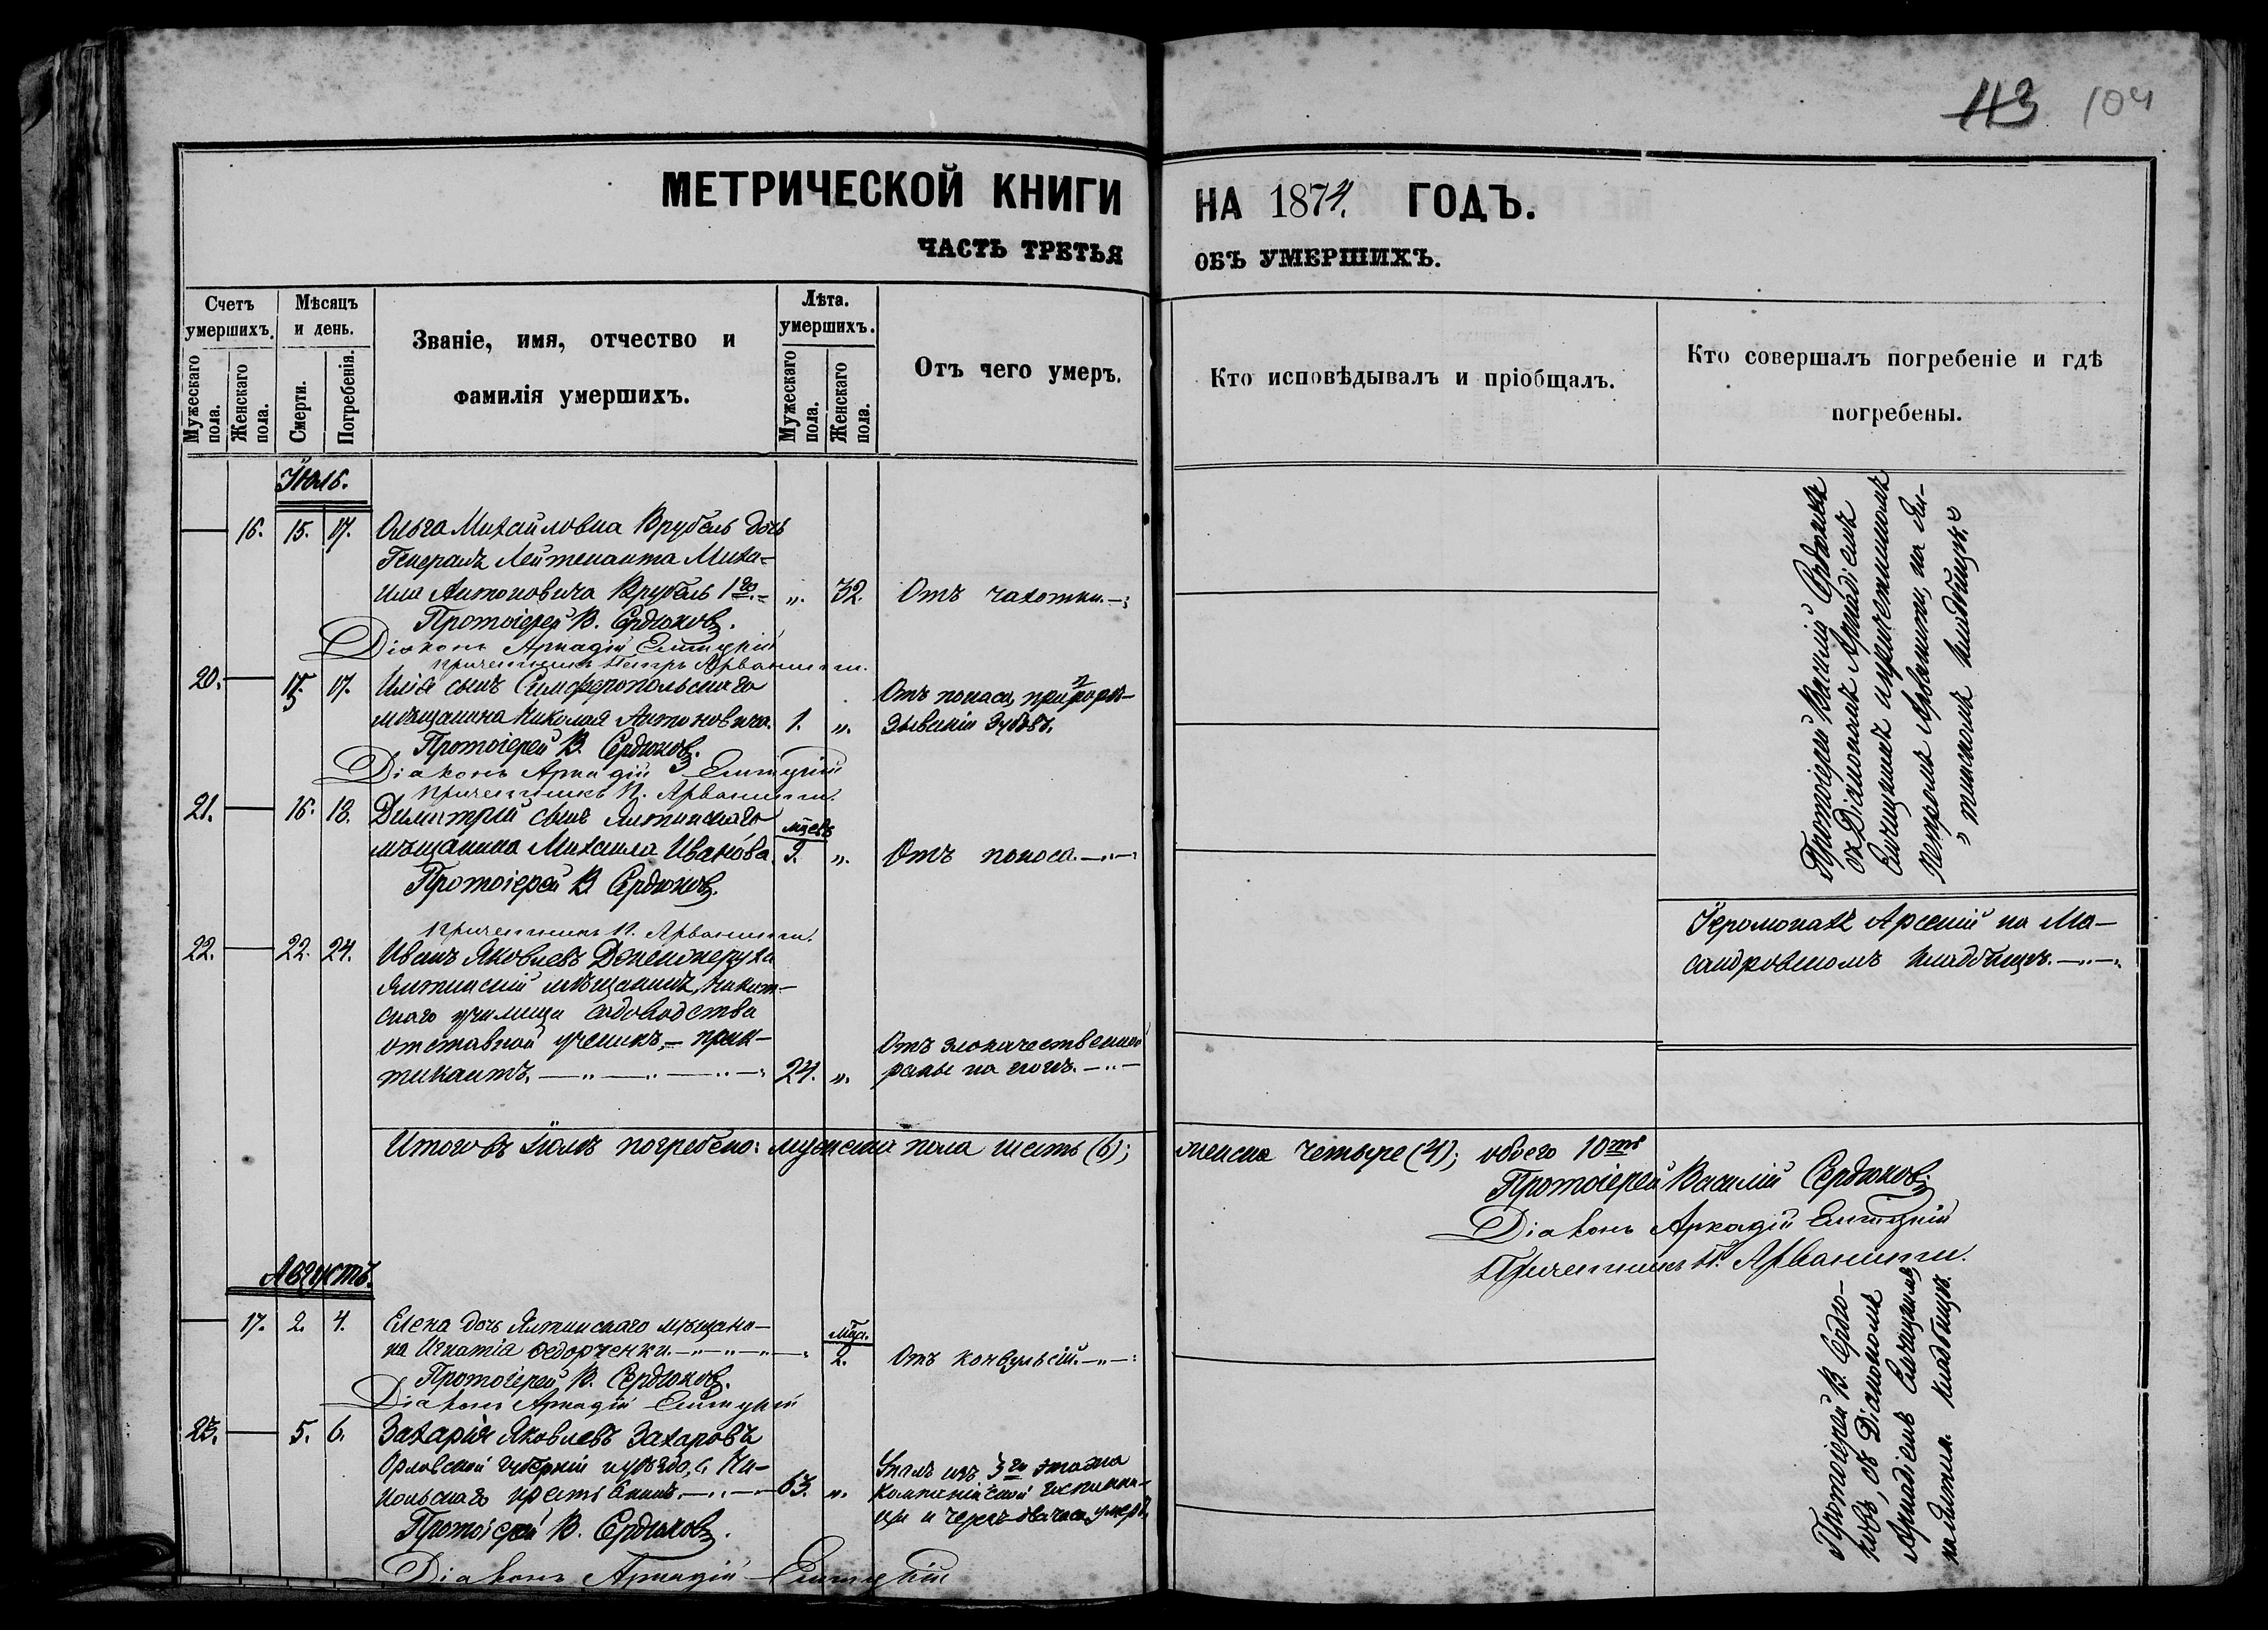 113 104
МЕТРИЧЕСКОЙ КНИГИ НА 1874. ГОДЪ.
ЧАСТЬ ТРЕТЬЯ ОБЪ УМЕРШИХЪ.
Счетъ умершихъ.
Мужескаго пола.
Женскаго пола.
Мѣсяцъ и день.
Смерти.
Погребенія.
Званіе, имя, отчество и
фамилія умершихъ.
Лѣта.
умершихъ.
Мужескаго пола.
Женскаго пола.
Отъ чего умеръ.
Кто исповѣдывалъ и пріобщалъ.
Кто совершалъ погребеніе и гдѣ
погребены.
Іюль.
16. 15. 17. Ольга Михайловна Врубель дочь
Генералъ Лейтенанта Миха-
ила Антоновича Врубель 1го. „ 32. Отъ чахотки.
Протоіерей В. Сердюковъ.
Діаконъ Аркадій
Причетникъ Петръ Арванитти.
20. 15. 17. Илія сынъ Симферопольскаго
мѣщанина Николая Антоновича. 1. „
Отъ поноса, при проре-
зываніи зубовъ.
Протоіерей В. Сердюковъ.
Діаконъ Аркадій
Причетникъ П. Арванитти.
21. 16. 18. Димитрій сынъ Ялтинскаго
мѣщанина Михаила Иванова. мѣсяц. 3. „ Отъ поноса.
Протоіерей В. Сердюковъ.
Причетникъ П. Арванитти.
22. 22. 24. Иванъ Яковлевъ
Ялтинскій мѣщанинъ, Никит-
скаго училища садоводства
отставной ученикъ, - прак-
тикантъ. 24. „
Отъ злокачественной
раны на ногѣ.
Протоіерей Василій Сердюковъ
съ Діакономъ Аркадіемъ
и причетникомъ
Петромъ Арванитти, на Ял-
тинскомъ кладбищѣ.
Іеромонахъ Арсеній на Ма-
сандровскомъ кладбищѣ.
Итого въ Іюлѣ погребено: мужеска пола шесть (6); женска четыре (4); обоего 10ть
Протоіерей Василій Сердюковъ
Діаконъ Аркадій
Причетникъ П. Арванитти.
Августъ.
17. 2. 4. Елена дочь Ялтинскаго мѣщани-
на Игнатія Ѳедорченки. мѣц. 2. Отъ конвульсій.
Протоіерей В. Сердюковъ.
Діаконъ Аркадій
23. 5. 6. Захарія Яковлевъ Захаровъ
Орловской губерніи и уѣзда, с. Ни-
кольскаго крестьянинъ. 63. „
Упалъ изъ 3го этажа
гостинни-
цы и черезъ два часа умеръ.
Протоіерей В. Сердюковъ.
Діаконъ Аркадій
Протоіерей В. Сердю-
ковъ, съ Діакономъ
Аркадіемъ
на Ялтин. кладбищѣ.